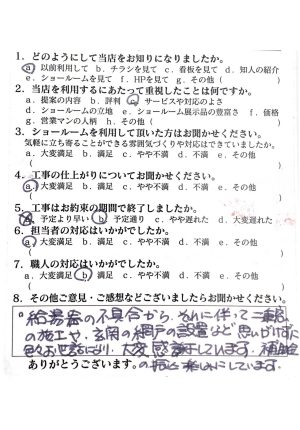 1．どのようにして当店をお知りになりましたか。
a．以前利用して b．チラシを見て c．看板を見て d．知人の紹介
e．ショールームを見て f．HPを見て g．その他（ ）
2．当店を利用するにあたって重視したことは何ですか。
a．提案の内容 b．評判 c．サービスや対応のよさ
d．ショールームの立地 e．ショールーム展示品の豊富さ f．価格
g．営業マンの人柄 h．その他（ ）
3．ショールームを利用して頂いた方はお聞かせください。
気軽に立ち寄ることができる雰囲気づくりや対応はできていましたか。
a．大変満足 b．満足 c．やや不満 d．不満 e．その他
（ ）
4．工事の仕上がりについてお聞かせください。
a．大変満足 b．満足 c．やや不満 d．不満 e．その他
（ ）
5．工事はお約束の期間で終了しましたか。
a．予定より早い b．予定通り c．やや遅れた d．大変遅れた
6．担当者の対応はいかがでしたか。
a．大変満足 b．満足 c．やや不満 d．不満 e．その他
（ ）
7．職人の対応はいかがでしたか。
a．大変満足 b．満足 c．やや不満 d．不満 e．その他
（ ）
8．その他ご意見・ご感想などございましたらお聞かせください。
給湯器の不具合から、それに伴って二重窓
の施工や、玄関の網戸の設置など思いがけずに
色々お世話になり、大変感謝しています。補助金
ありがとうございます。の方も楽しみにしています。